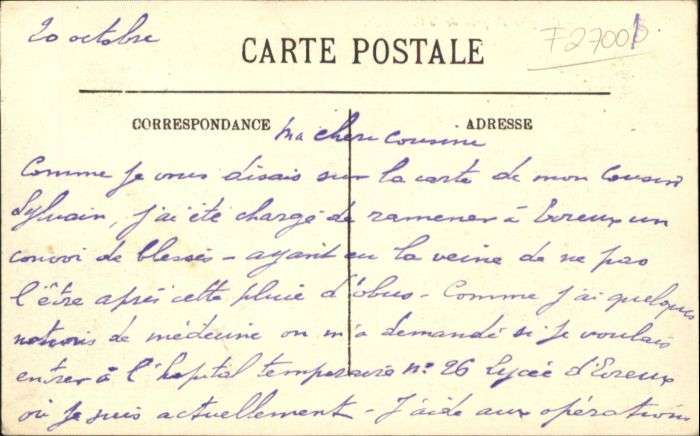 20 octobre
F2700
CARTE POSTALE
CORRESPONDANCE
ADRESSE
Ma chère Cousine
Comme je vous disais sur la carte de mon Cousin
Sylvain, j'ai été chargé de ramener à Evreux un
convoi de blessés - ayant eu la veine de ne pas
l'être après cette pluie d'obus - Comme j'ai quelques
notions de médecine on m'a demandé si je voulais
entrer à l'hopital temporaire n° 26 Lycée d'Evreux
où je suis actuellement - J'aide aux opérations